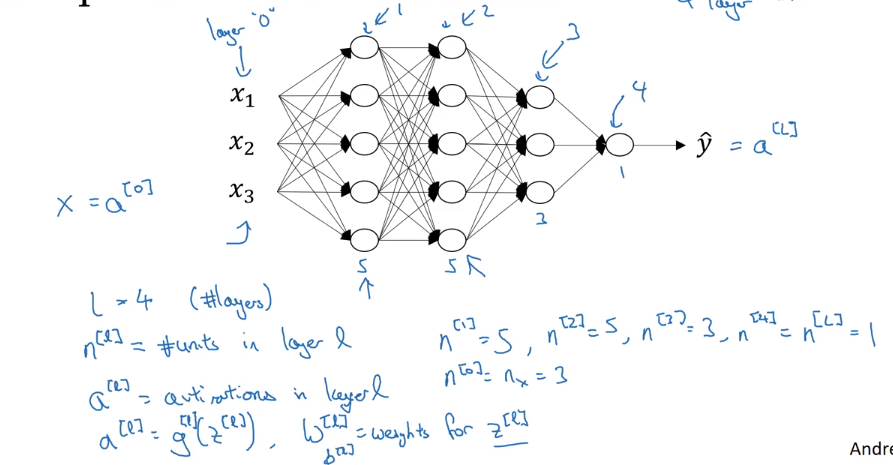 4 layer
layer "0"
1
2
3
4
x₁
x₂
x₃
ŷ = a^[L]
1
X = a^[0]
3
5
5
L = 4 (#layers)
n^[l] = #units in layer l
n^[1] = 5, n^[2] = 5, n^[3] = 3, n^[4] = n^[L] = 1
n^[0] = n_x = 3
a^[l] = activations in layer l
a^[l] = g^[l](z^[l]), W^[l] = weights for z^[l]
b^[l]
Andre